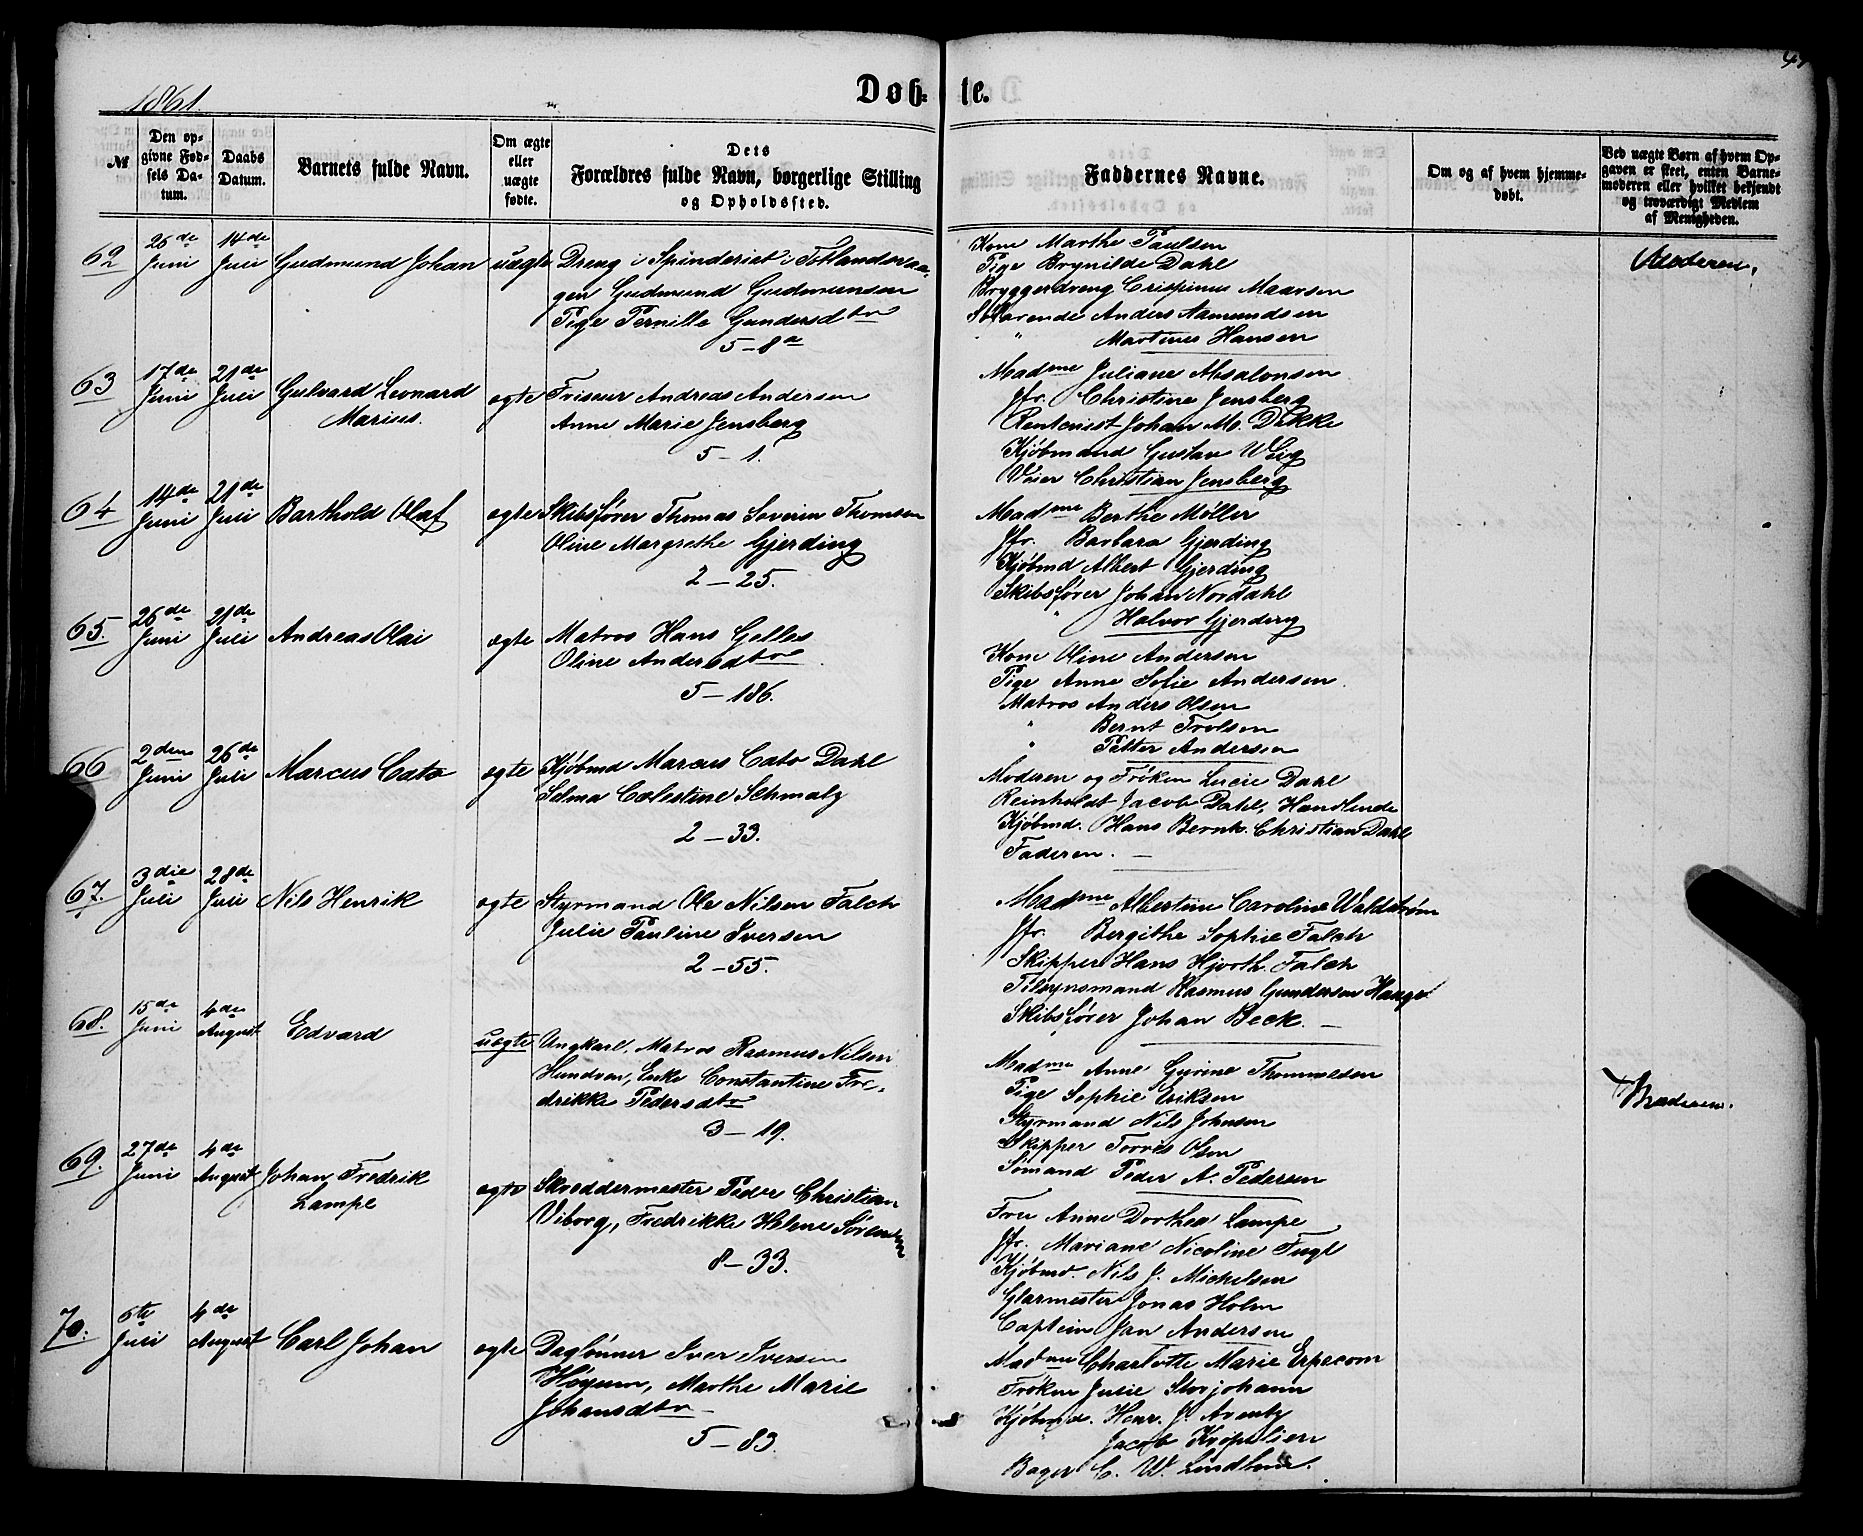 1861.
Døb=te.
№
Den op-
givne Fød-
sels Da-
tum.
Daabs
Datum.
Barnets fulde Navn.
Om ægte
eller
uægte
fødte.
Dets
Forældres fulde Navn, borgerlige Stilling
og Opholdssted.
Faddernes Navne.
Om og af hvem hjemme-
døbt.
Ved uægte Børn af hvem Op-
gaven er skeet, enten Barne-
moderen eller hvilket bekjendt
og troværdigt Medlem
af Menigheden.
62
26de
Juni
14de
Juli
Gudmund Johan
uægte
Dreng i Spinderiet i
gen Gudmund Gudmunsen
Pige Pernille Gundersdtr
5–8a
Kone Marthe Paulsen
Pige Brynilde Dahl
Bryggerdreng Crispinus Maarsen
Anders Aamundsen
" Martines Hansen
Moderen.
63
17de
Juni
21de
Juli
Gulvard Leonard
Marius.
ægte
Friseur Andreas Andersen
Anne Marie Jensberg
5–1.
Madme Juliane Absalonsen
Jfr. Christine Jensberg
Rentenist Johan M. Dekke
Kjøbmand Gustav
Christian Jensberg
64
14de
Juni
21de
Juli
Barthold Olaf
ægte
Skibsfører Thomas Severin Thomsen
Oline Margrethe Gjerding
2–25.
Madme Berthe Møller
Jfr. Barbara Gjerding
Kjøbmd Albert Gjerding
Skibsfører Johan Nordahl
" Halvor Gjerding
65.
26de
Juni
21de
Juli
Andreas Olai
ægte
Matros Hans Gelles
Oline Andersdtr
5–186.
Kone Oline Andersen
Pige Anne Sofie Andersen.
Matros Anders Olsen
" Bernt Trolsen
" Petter Andersen
66
2den
Juni
26de
Juli
Marcus Cato
ægte
Kjøbmd Marcus Cato Dahl
Selma Cælestine Schmalz
2–33.
Moderen og Frøken Lucie Dahl
Reinholdt Jacob Dahl, Handlende
Kjøbmd. Hans Bernh. Christian Dahl
Faderen.
67.
3die
Juli
28de
Juli
Nils Henrik
ægte
Styrmand Ole Nilsen Falch
Julie Pauline Iversen
2–55.
Madme Albertine Caroline Waldstrøm
Jfr. Bergithe Sophie Falch
Skipper Hans Hjorth Falch
Tilsynsmand Rasmus Gundersen Hauge
Skibsfører Johan Beck.
68.
15de
Juni
4de
August
Edvard
uægte
Ungkarl, Matros Rasmus Nilsen
Hundven, Enke Constantine Fre-
drikke Pedersdtr
3–19.
Madme Anne Gurine Thommesen
Pige Sophie Eriksen
Styrmand Nils Johnsen
Skipper Torres Olsen
Sømand Peder A. Pedersen
Moderen.
69.
27de
Juni
4de
August
Johan Fredrik
Lampe
ægte
Skreddermester Peder Christian
Viborg, Fredrikke Helene Sørensen
8–33.
Frue Anne Dorthea Lampe
Jfr. Mariane Nicoline Fugl
Kjøbmd. Nils J. Michelsen
Glarmester Jonas Holm
Captein Jan Andersen
70.
6te
Juli
4de
August
Carl Johan
ægte
Daglønner Iver Iversen
Høyum, Marthe Marie
Johansdtr
5–83.
Madme Charlotte Marie Erpecom
Frøken Julie Storjohann
Kjøbmd. Henr. J.
" Jacob
Bager C. W.